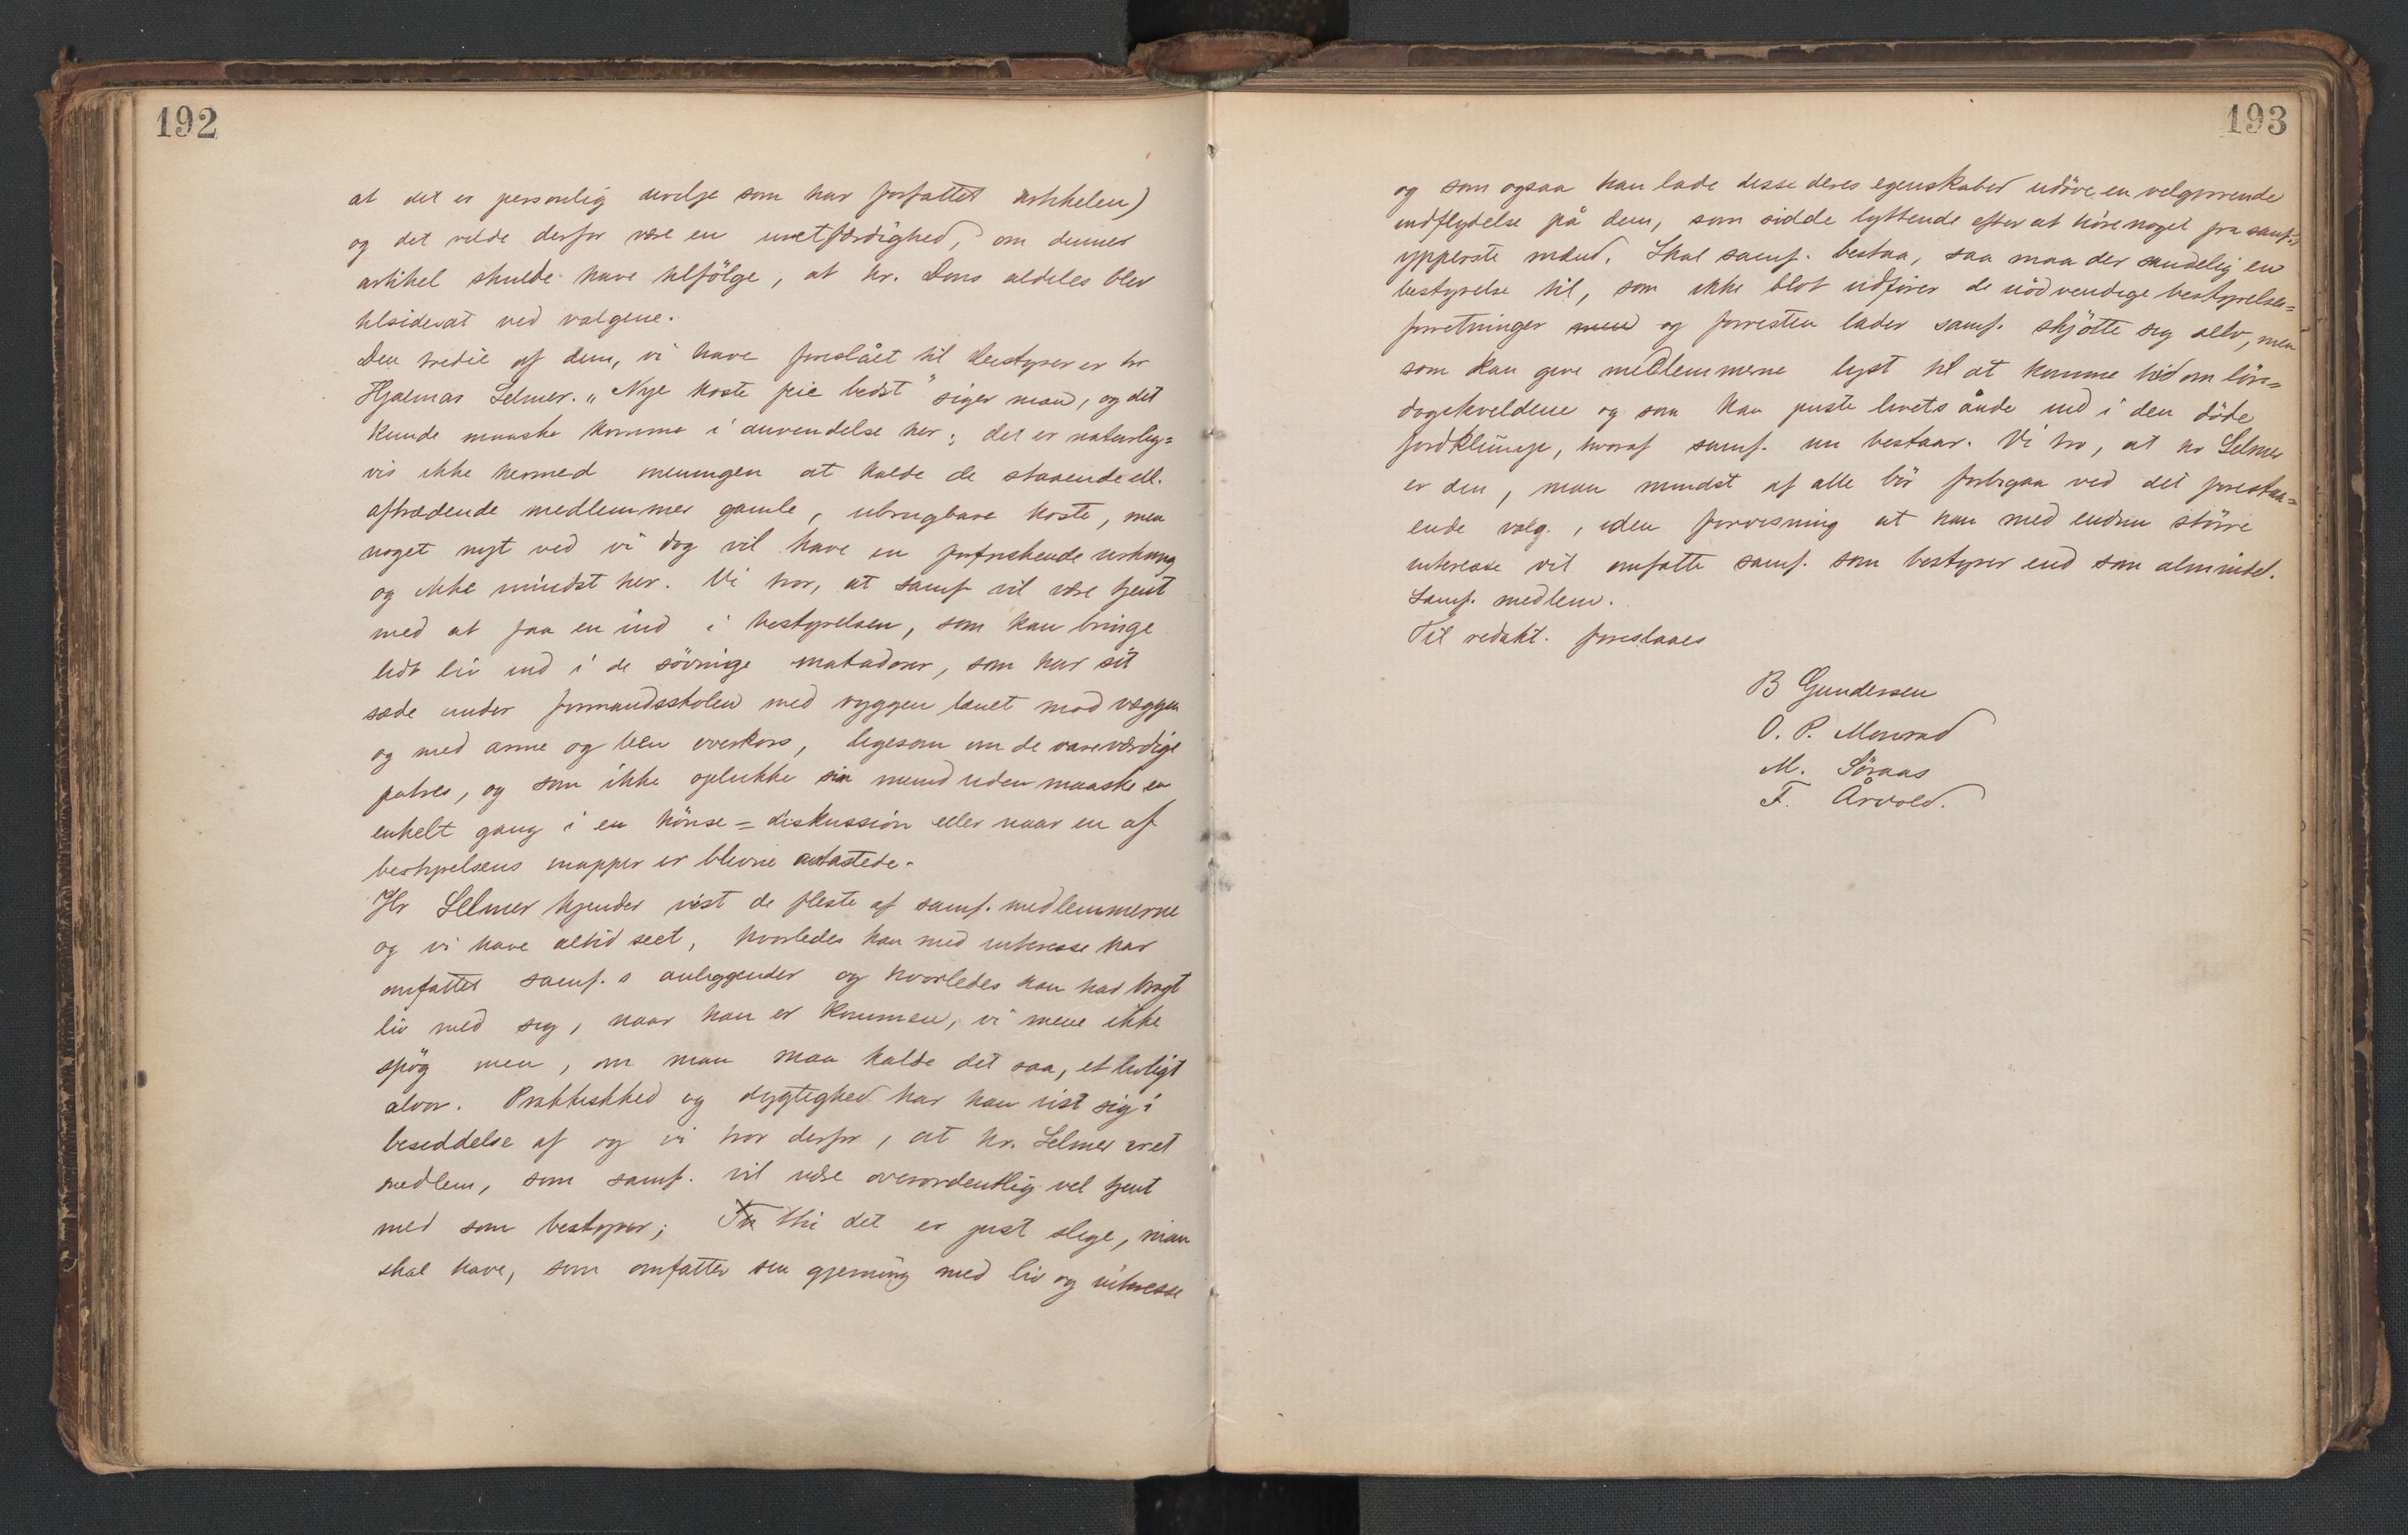 192
at det er personlig uvilje som har forfattet artikelen)
og det vilde derfor være en uretfærdighed, om denner
artikel skulde have tilfölge, at hr. Dons aldeles blev
tilsidesat ved valgene.
Den tredie af dem, vi have foreslået til bestyrer er hr
Hjalmar Selmer. „Nye koste feie bedst" siger man, og det
kunde maaske komme i anvendelse her; det er naturlig=
vis ikke hermed meningen at kalde de staaende ell.
aftrædende medlemmer gamle, ubrugbare koste, men
noget nyt ved vi dog vil have en forfriskende virkning
og ikke mindst her. Vi tror, at samf vil være tjent
med at faa en ind i bestyrelsen, som kan bringe
lidt liv ind i de sövnige matadorer, som har sit
sæde under formandsstolen med ryggen lænet mod væggen
og med arme og ben overkors, ligesom om de vare værdige
patres, og som ikke oplukke sin mund uden maaske en
enkelt gang i en hönse=diskussion eller naar en af
bestyrelsens mapper er blevne antastede.
Hr Selmer kjender vist de fleste af samf. medlemmerne
og vi have altid seet, hvorledes han med interesse har
omfattet samf.s anliggender og hvorledes han har bragt
liv med sig, naar han er kommen, vi mene ikke
spög men, om man maa kalde det saa, et livligt
alvor. Praktiskhed og dygtighed har han vist sig i
besiddelse af og vi tror derfor, at hr. Selmer er et
medlem, som samf. vil være overordentlig vel tjent
med som bestyrer; thi det er just slige, man
skal have, som omfatter sin gjerning med liv og interesse
193
og som ogsaa kan lade disse deres egenskaber udöve en velgjörende
indflydelse på dem, som sidde lyttende efter at höre noget fra samf.s
ypperste mænd. Skal samf. bestaa, saa maa der sandelig en
bestyrelse til, som ikke blot udfører de nödvendige bestyrelses=
forretninger men og forresten lader samf. skjötte sig selv, men
som kan give medlemmerne lyst til at komme hid om lör=
dagskveldene og som kan puste livets ånde ind i den döde
jordklump, hvoraf samf. nu bestaar. Vi tro, at hr Selmer
er den, man mindst af alle bör forbigaa ved det forestaa=
ende valg., i den forvisning at han med endnu större
interesse vil omfatte samf. som bestyrer end som almindel.
Samf. medlem.
Til redakt. foreslaaes
B Gundersen
O. P. Monrad
M. Söraas
F. Årvold.